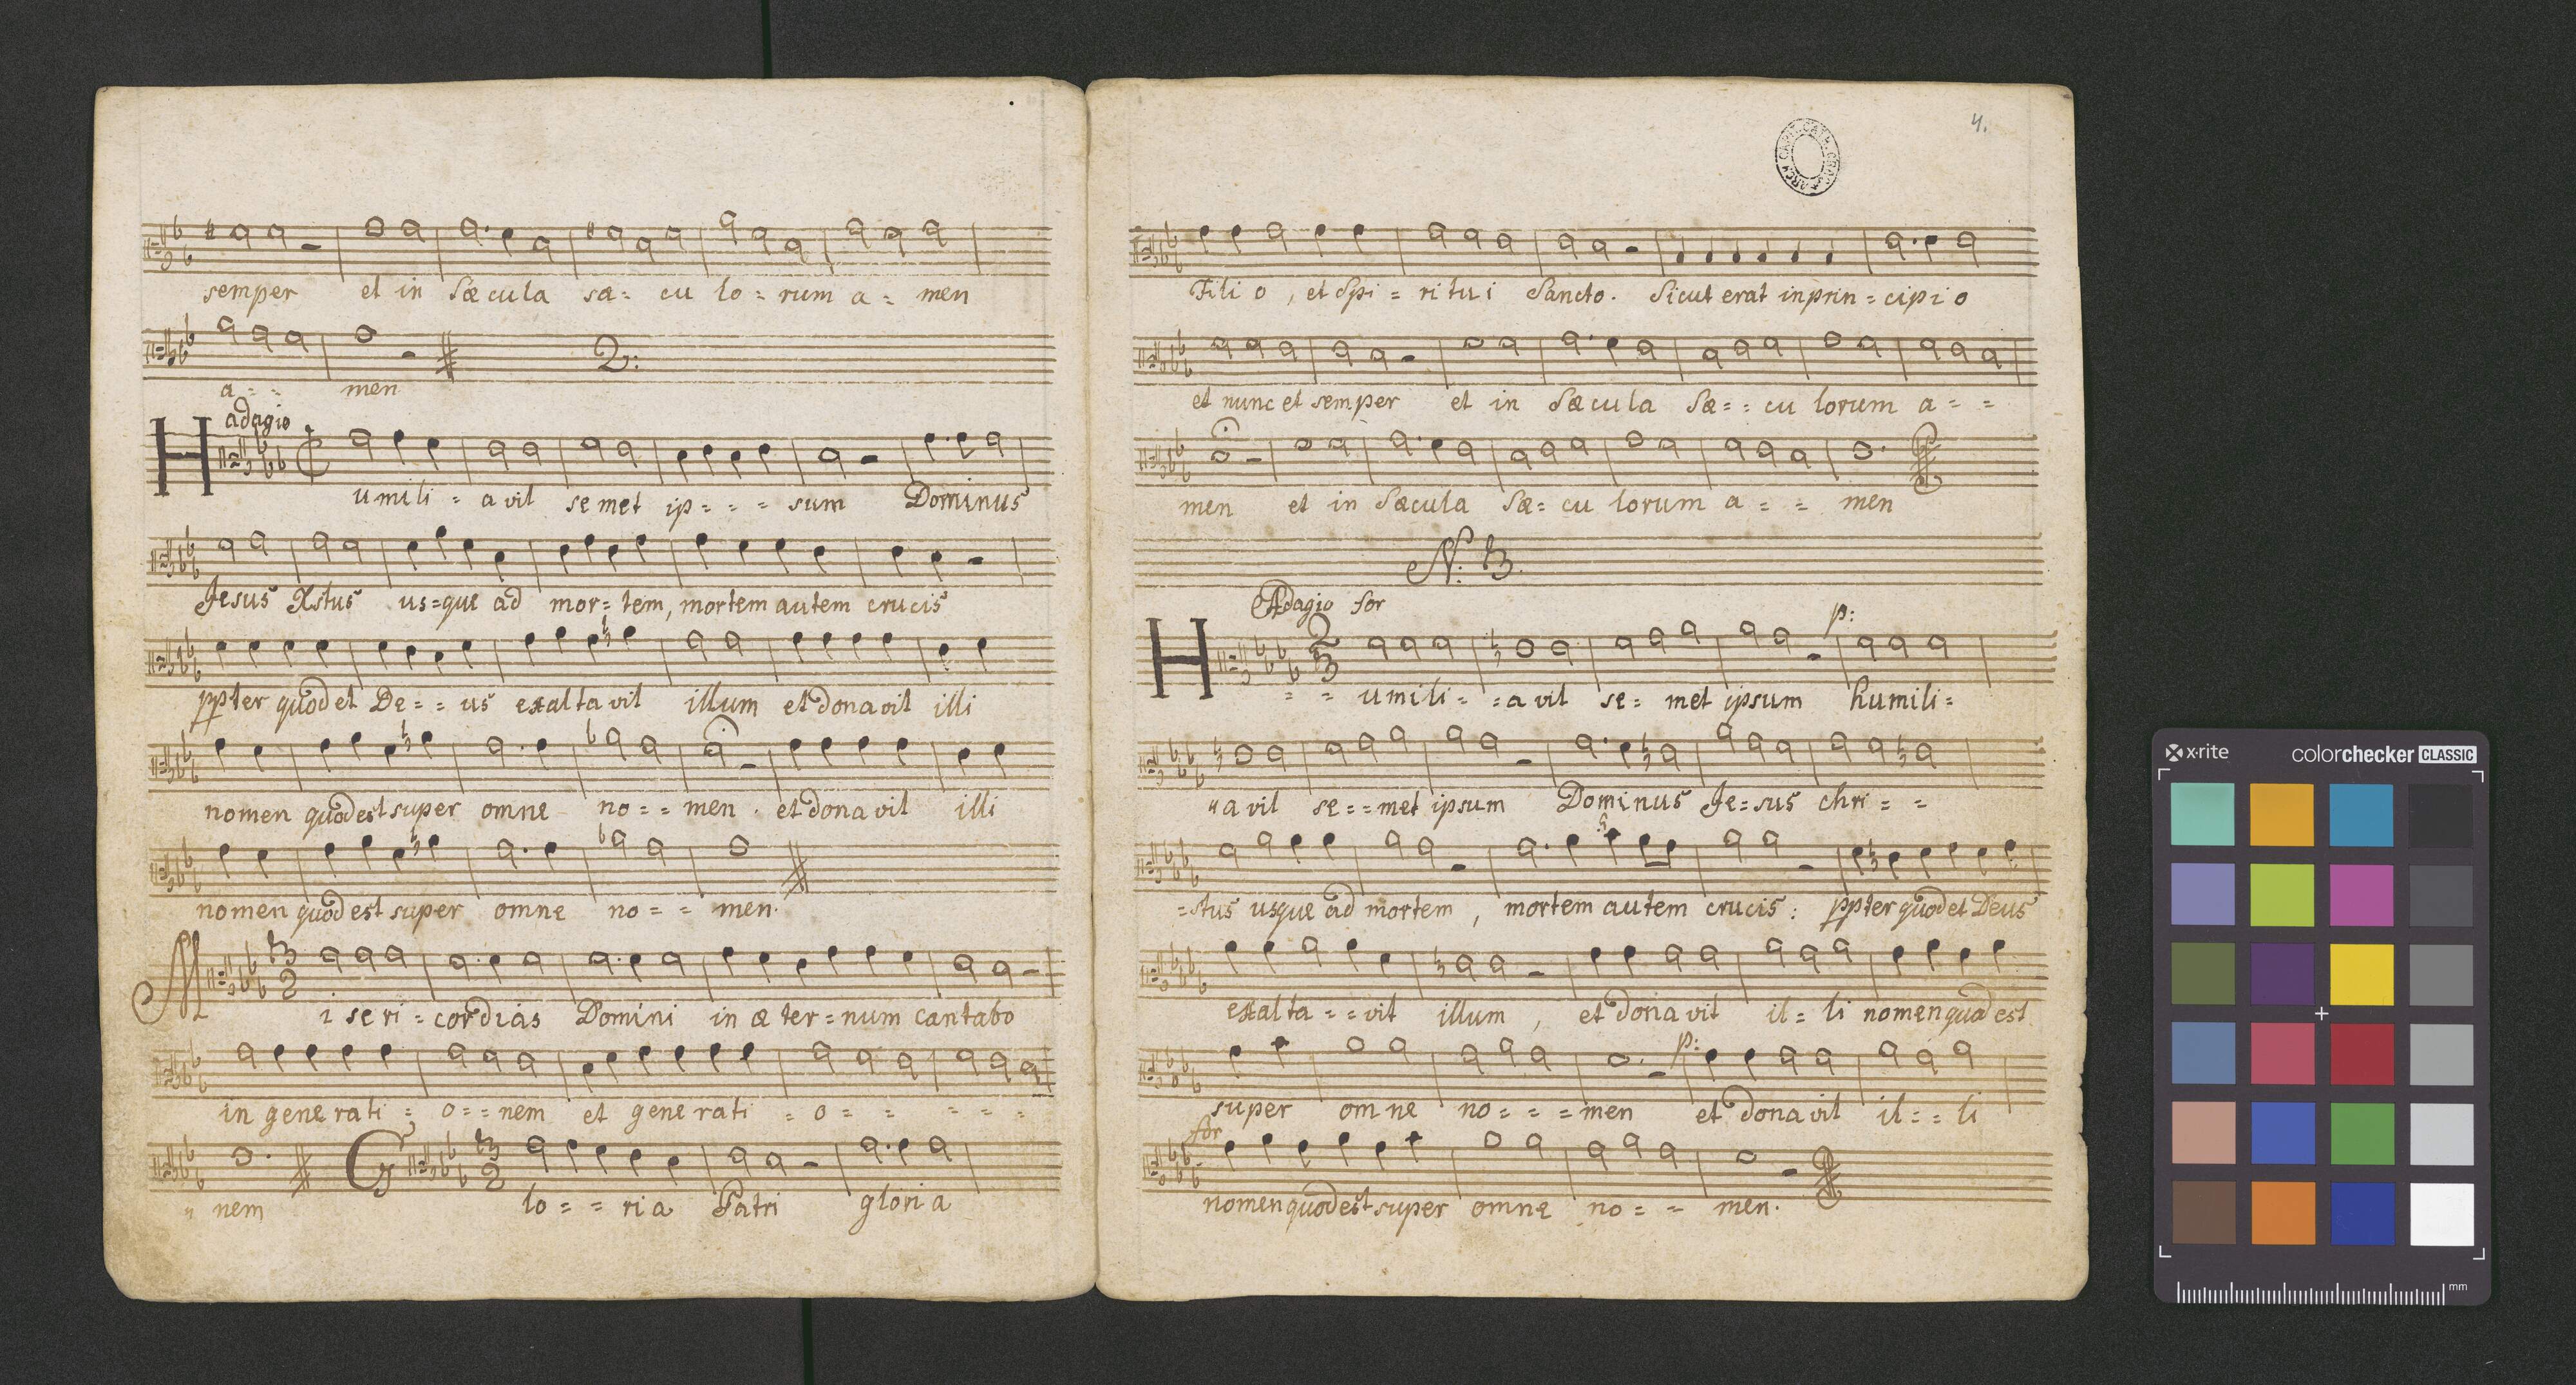 semper et in Sæcula sæ= cu lo = rum a = men
2:
a = = men
adagio
Humili = avit semet ip = = = sum Dominus
Jesus Xstus us=que ad mor= tem, mortem autem crucis
ppter quod et De = = us exaltavit illum et donavit illi
nomen quod est super omne no = = men. et donavit illi
nomen quod est super omne no = = men.
3 2
Miseri = cordias Domini in æ ter = num cantabo
in generati = o = = nem et generati = o = = = = =
3 2
= nem Glo = = ria Patri gloria
4.
Filio, et Spi = ritui Sancto. Sicut erat in prin = cipio
et nunc et semper et in Sæcula Sæ = = cu lorum a = =
men et in Sæcula Sæ= cu lorum a = = men
N: 3.
Adagio for p:
2 3
H= = umili = = avit se = met ipsum humili =
"avit se = = met ipsum Dominus Je = sus chri = =
=stus usque ad mortem, mortem autem crucis: ppter quod et Deus
exalta = = vit illum, et donavit il = li nomen quod est
p:
super omne no = = = men et donavit il = = li
for
nomen quod est super omne no = = men.
x·rite colorchecker CLASSIC
mm